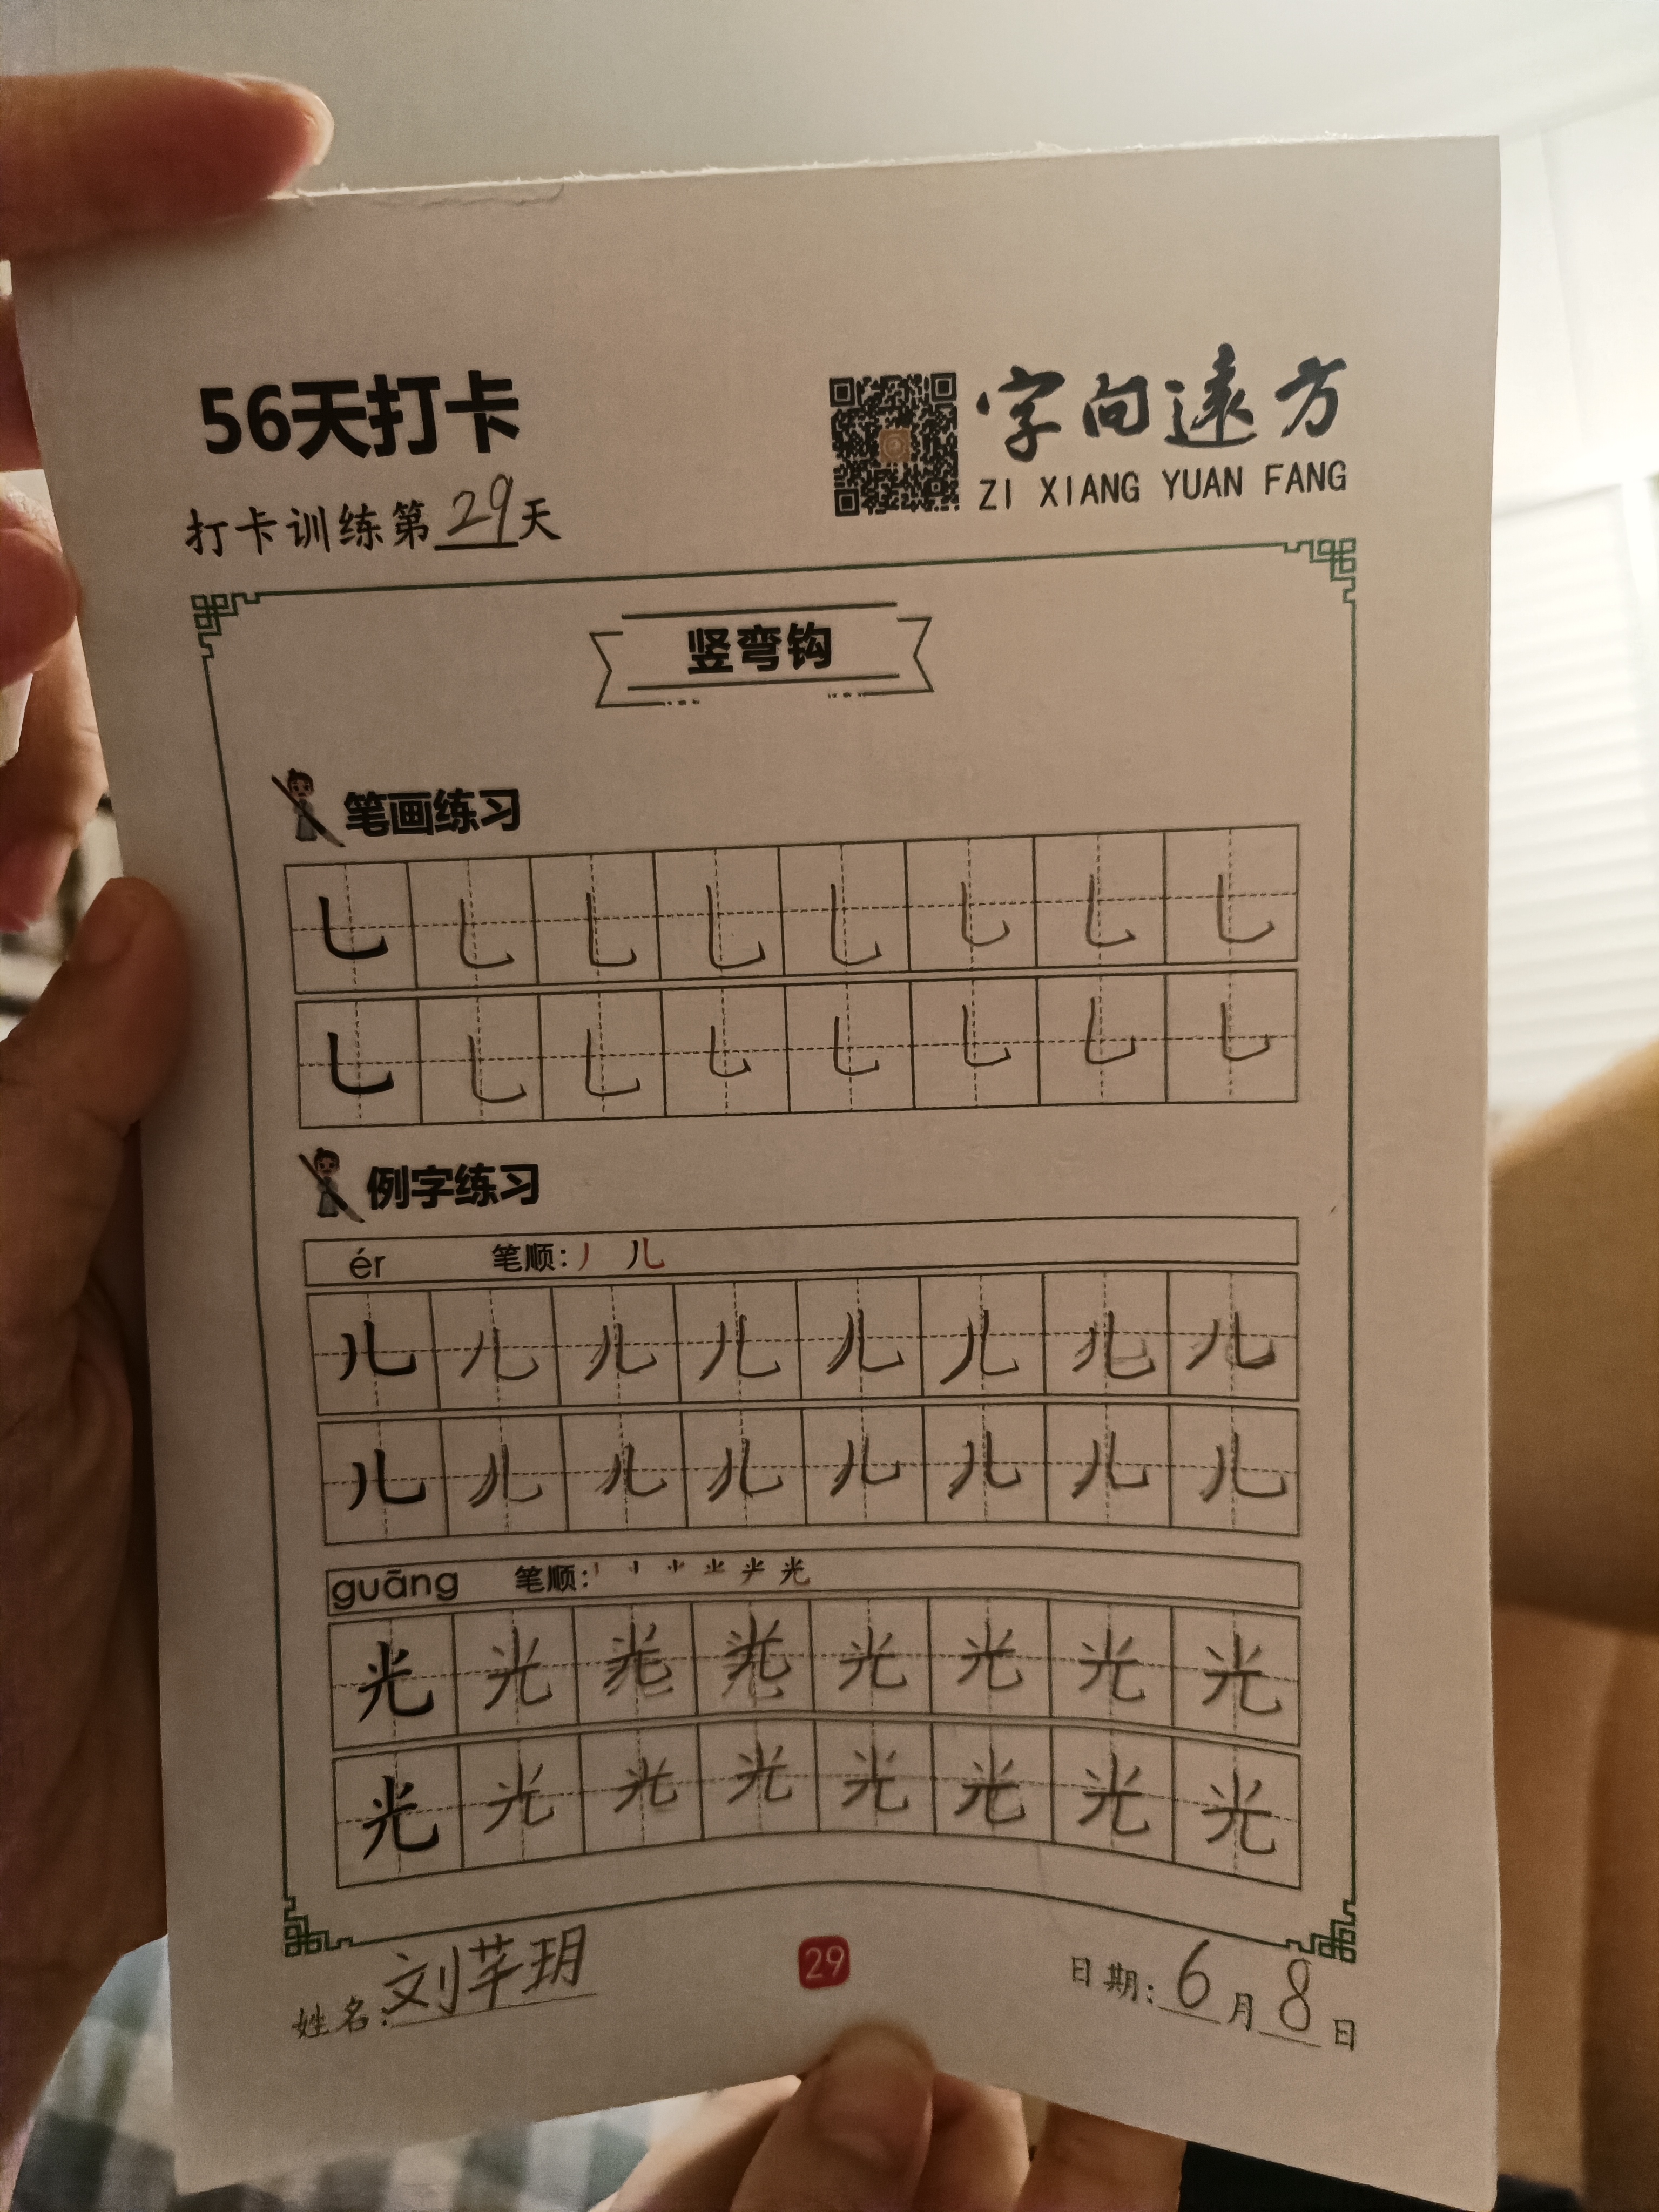 56天打卡
字向遠方
ZI XIANG YUAN FANG
打卡训练第29天
竖弯钩
笔画练习
㇄ ㇄ ㇄ ㇄ ㇄ ㇄ ㇄ ㇄
㇄ ㇄ ㇄ ㇄ ㇄ ㇄ ㇄ ㇄
例字练习
ér 笔顺: 丿 儿
儿 儿 儿 儿 儿 儿 儿 儿
儿 儿 儿 儿 儿 儿 儿 儿
guāng 笔顺: 光
光 光 光 光 光 光 光 光
光 光 光 光 光 光 光 光
姓名:刘芊玥
29
日期:6月8日